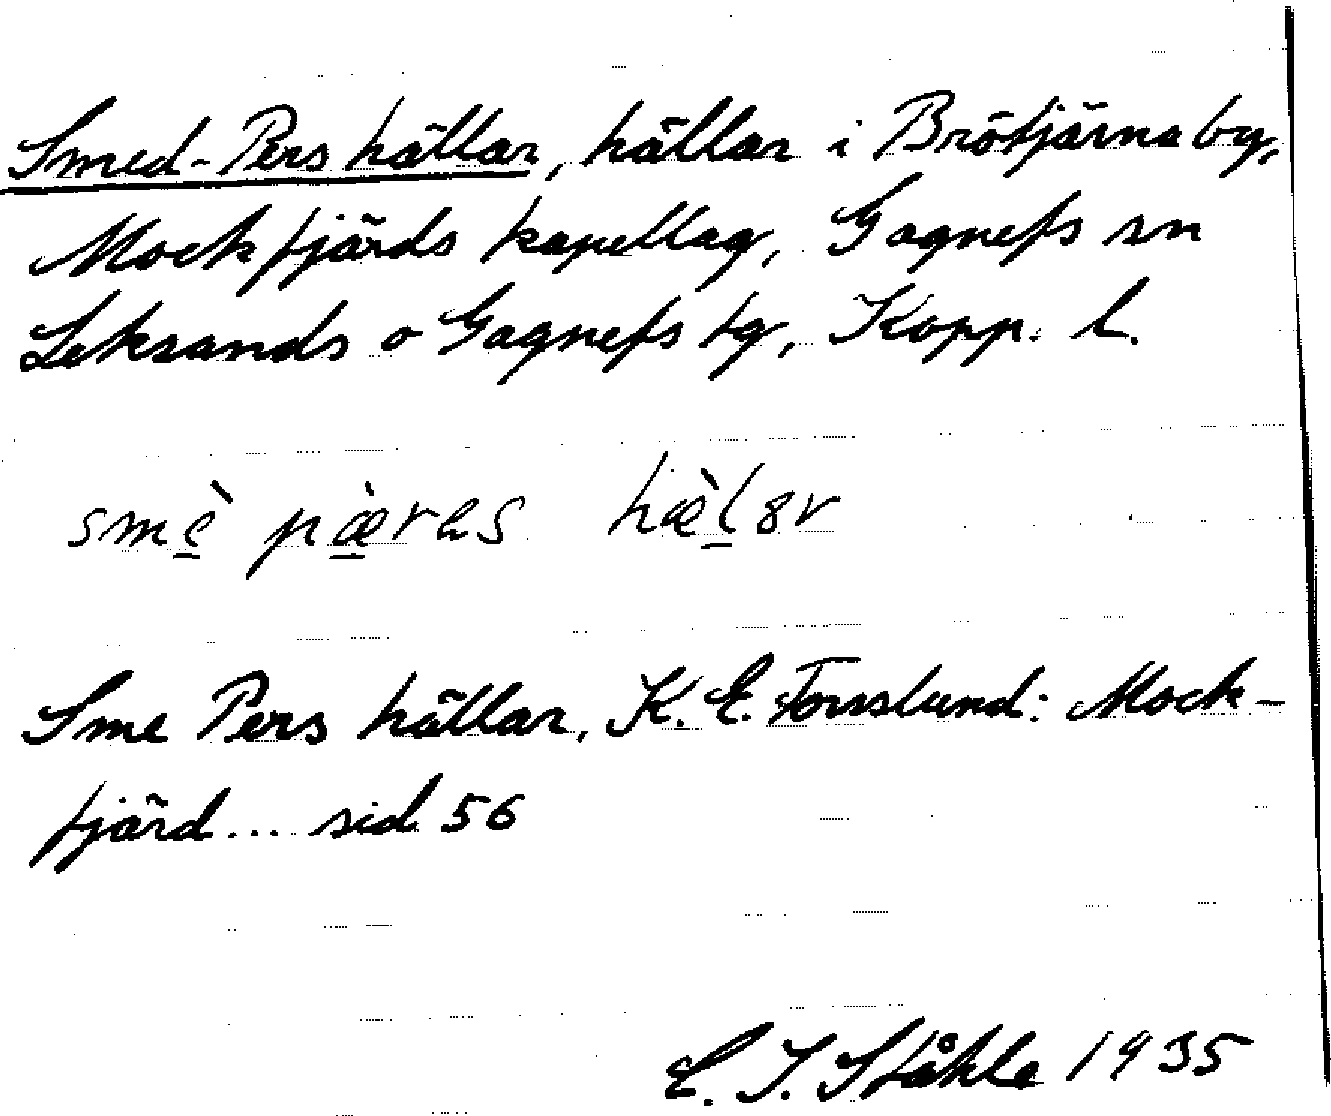 Smed-Pers hällar, hällar i Brötjärna by,
Mockfjärds kapellag, Gagnefs sn
Leksands o Gagnefs tg, Kopp. l.
smè pæ̀ras
Sme Pers hällar, K. E. Forsslund: Mock-
fjärd... sid 56
C. I. Ståhle 1935